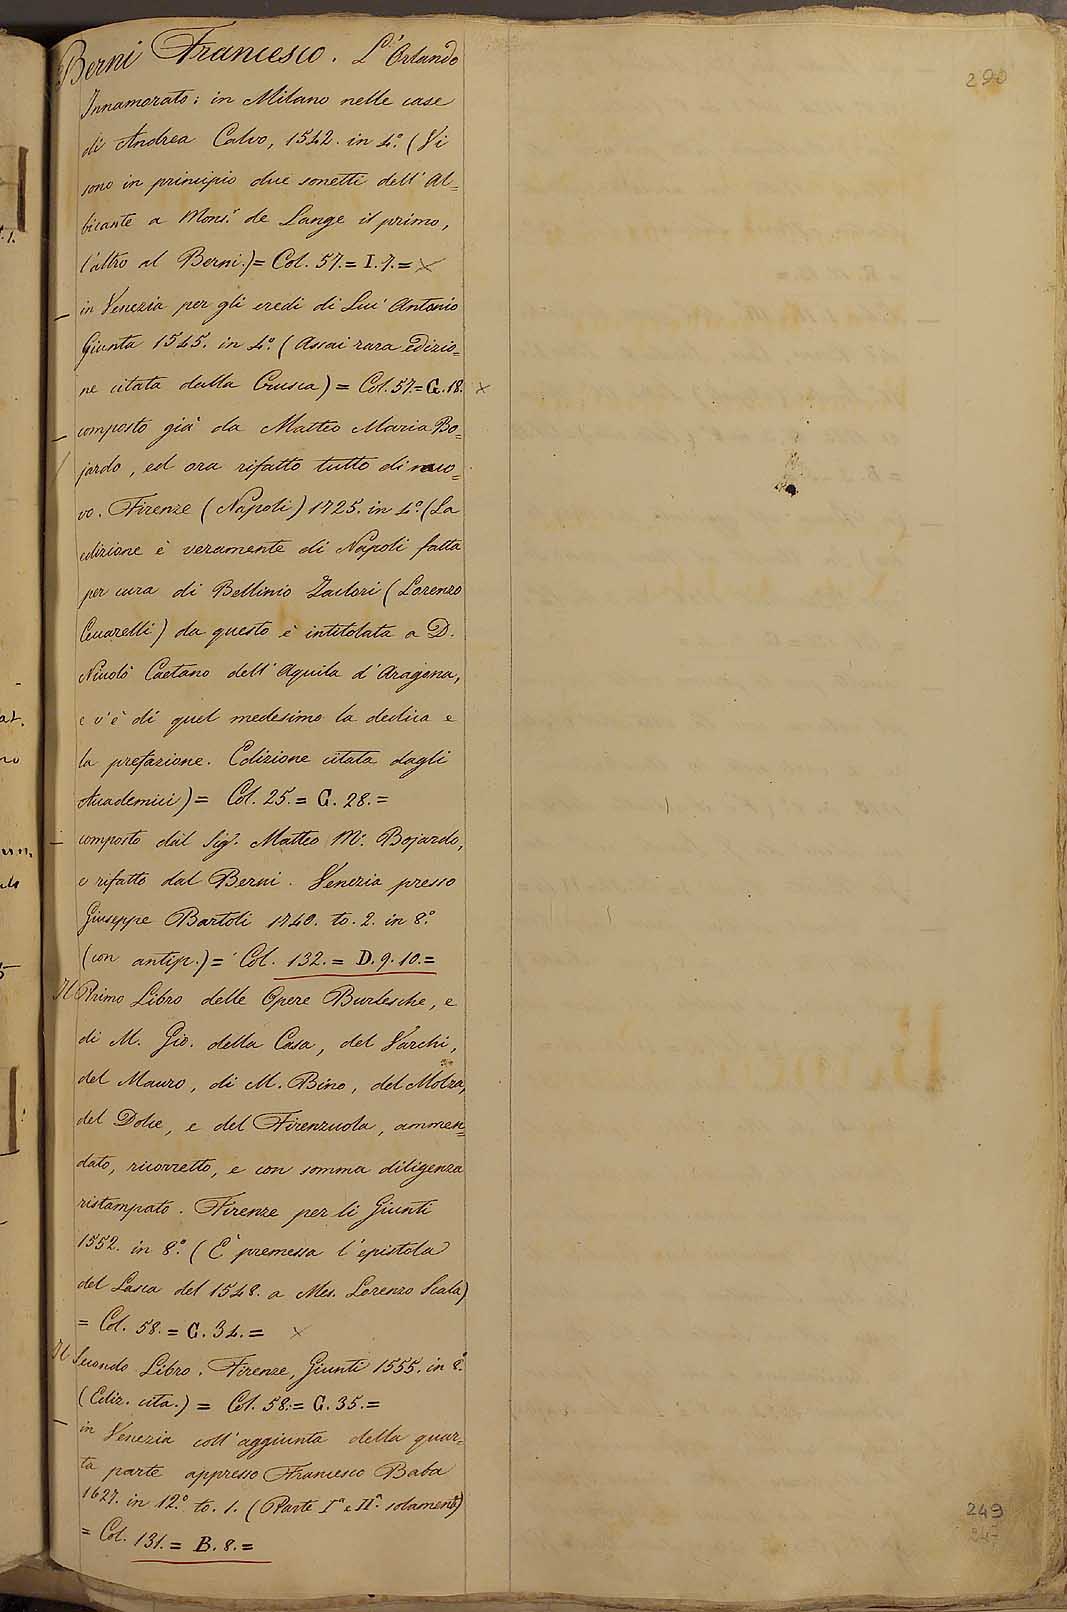 290
Berni Francesco. L'Orlando
Innamorato: in Milano nelle case
di Andrea Calvo, 1542. in 4.º (Vi
sono in principio due sonetti dell' Al=
bicante a Mons.r de Lange il primo,
l'altro al Berni.) = Col. 57. = I. 7. = ×
— in Venezia per gli eredi di Luc' Antonio
Giunta 1545. in 4.º (Assai rara edizio=
ne citata dalla Crusca) = Col. 57. = G. 18. ×
— composto già da Matteo Maria Bo=
jardo, ed ora rifatto tutto di nuo=
vo. Firenze (Napoli) 1725. in 4.º (La
edizione è veramente di Napoli fatta
per cura di Bellinio Zaclori (Lorenzo
Ciccarelli) da questo è intitolata a D.
Niccolò Caetano dell' Aquila d'Aragona,
e v'è di quel medesimo la dedica e
la prefazione. Edizione citata dagli
Accademici) = Col. 25. = G. 28. =
— composto dal Sig.r Matteo M.a Bojardo,
e rifatto dal Berni. Venezia presso
Giuseppe Bartoli 1740. to. 2. in 8.º
(con antip.) = Col. 132. = D. 9. 10. =
Il Primo Libro delle Opere Burlesche, e
di M. Gio. della Casa, del Varchi,
del Mauro, di M. Bino, del Molza,
del Dolce, e del Firenzuola, ammen=
dato, ricorretto, e con somma diligenza
ristampato. Firenze per li Giunti
1552. in 8.º (È premessa l'epistola
del Lasca del 1548. a Mes. Lorenzo Scala)
= Col. 58. = G. 34. = ×
Il Secondo Libro. Firenze, Giunti 1555. in 8.º
(Ediz. cita.) = Col. 58. = G. 35. =
— in Venezia coll' aggiunta della quar=
ta parte appresso Francesco Baba
1627. in 12.º to. 1. (Parte I.a e II.a solamente)
= Col. 131. = B. 8. =
249